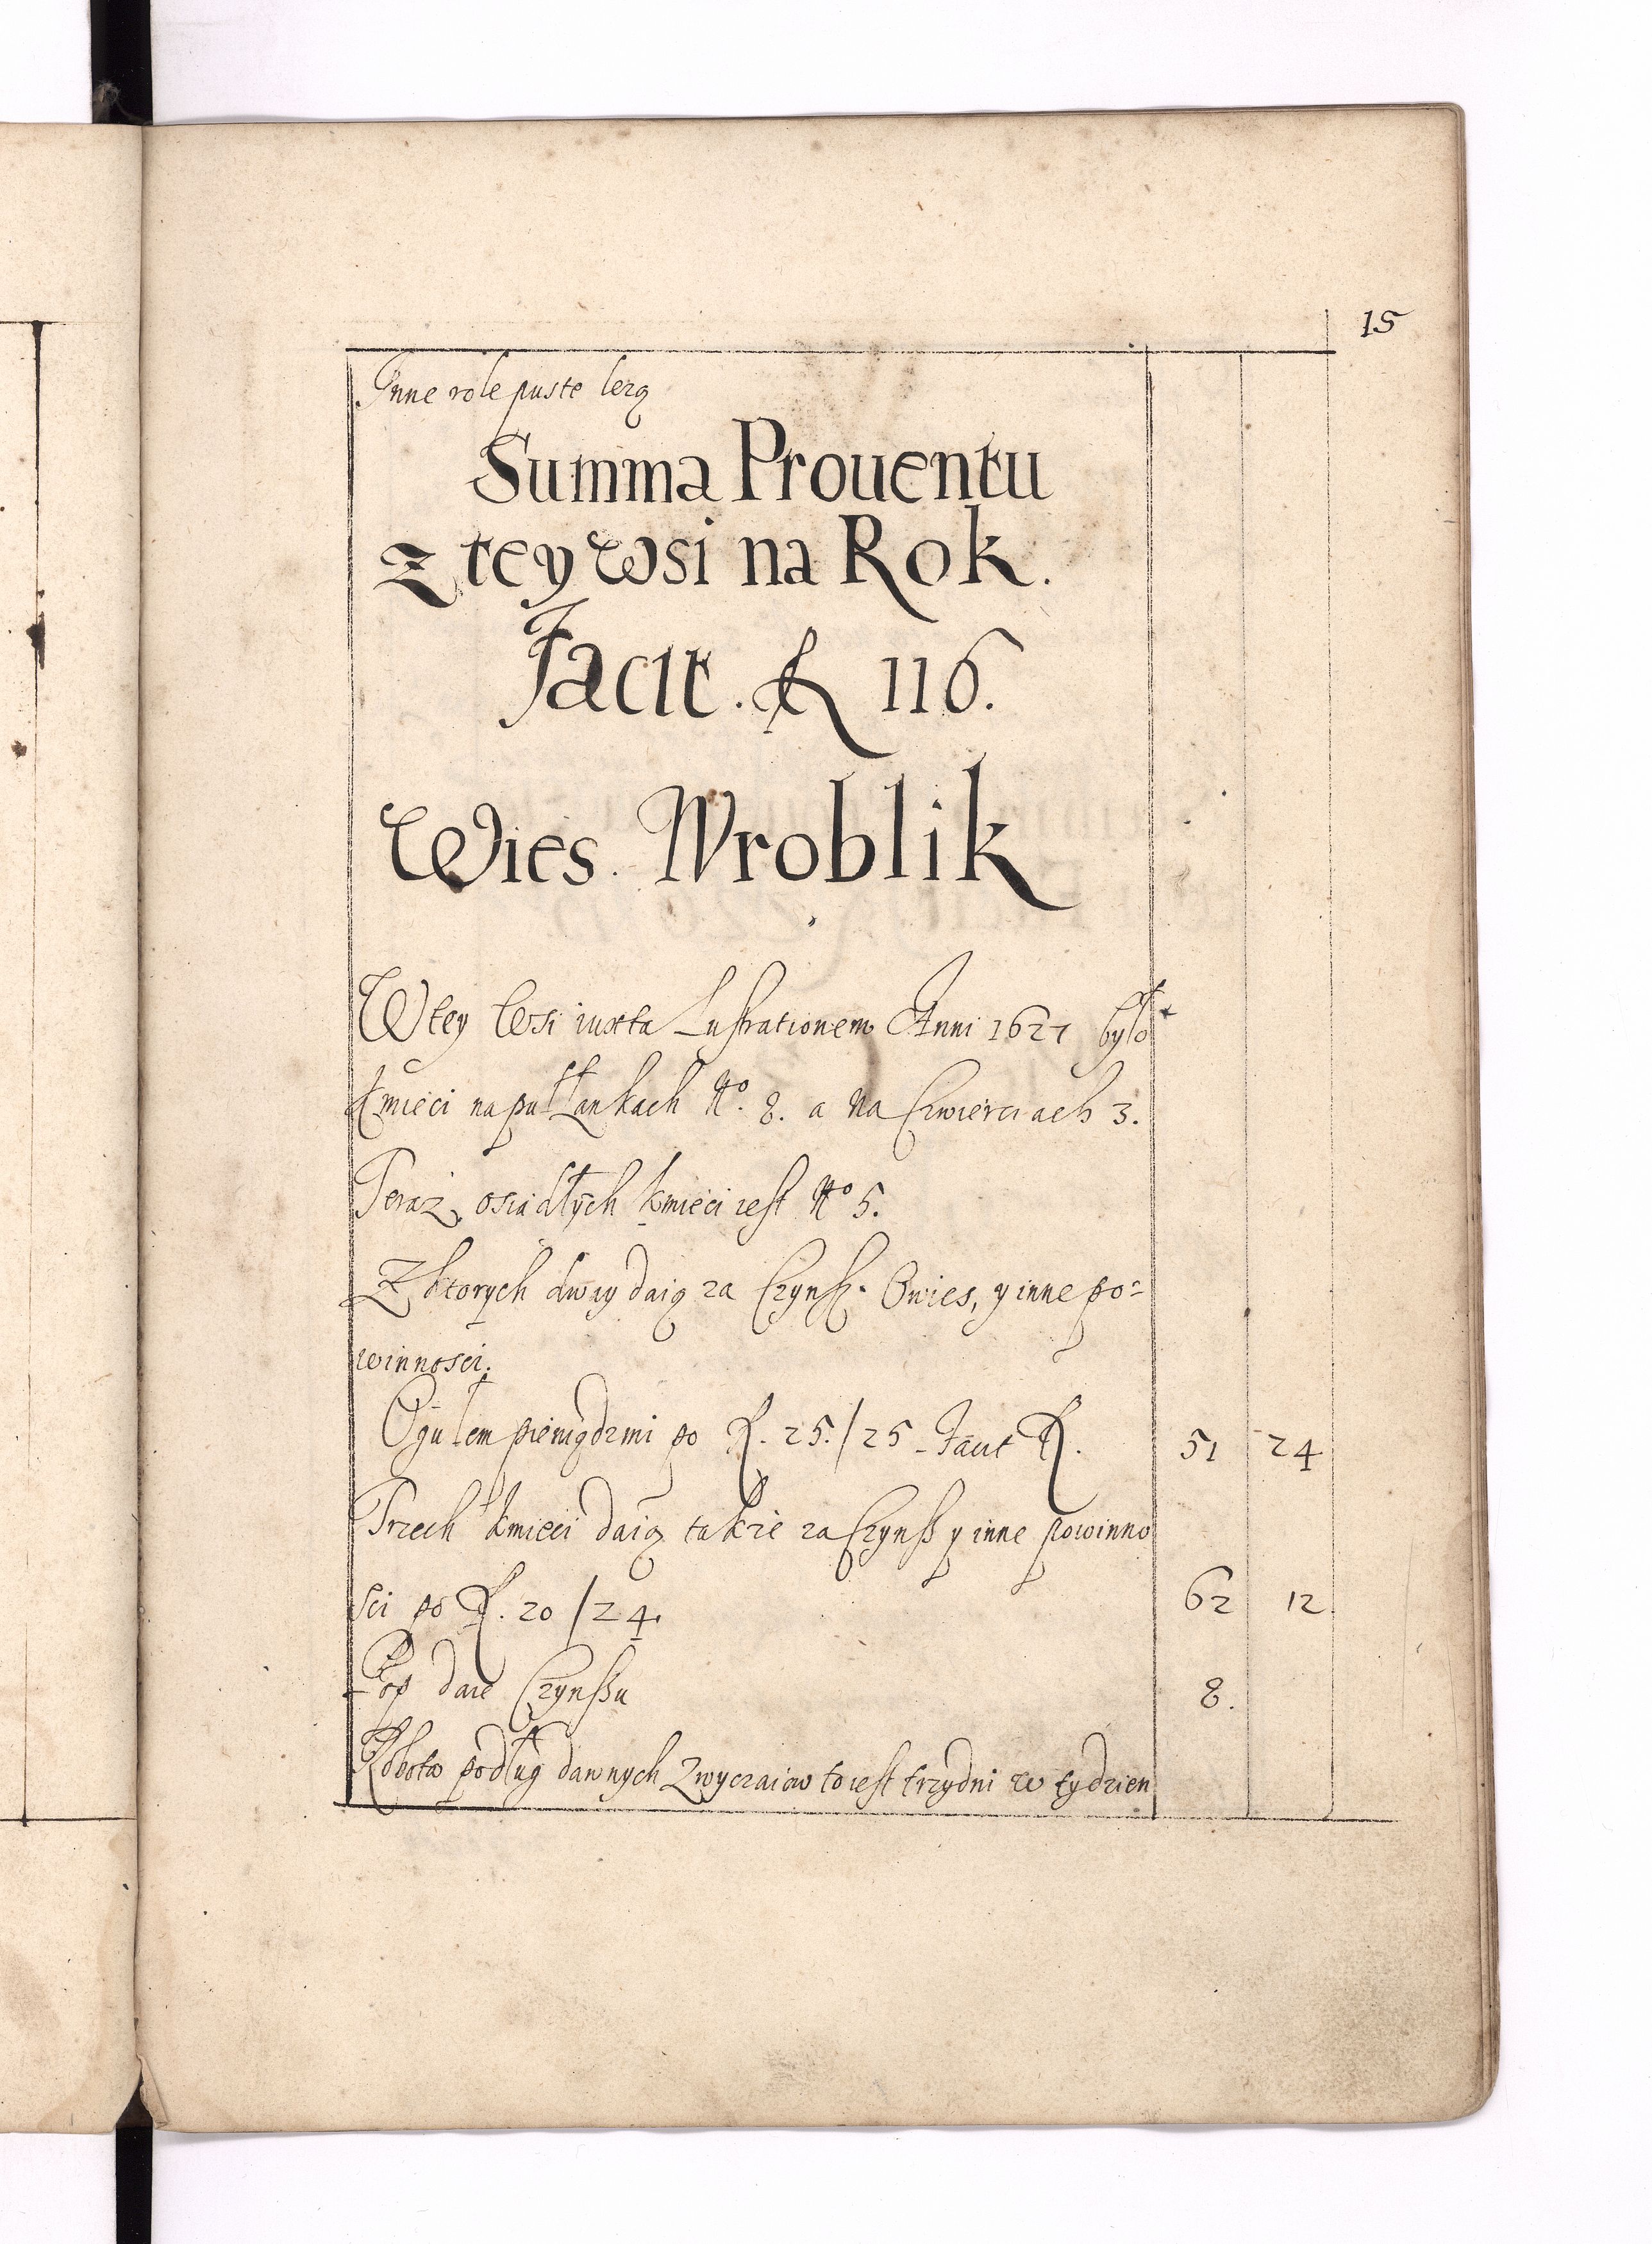 15
Inne role puste leżą
Summa Prouentu
z tey wsi na Rok.
Facit. fl 116.
Wies. Wroblik
W tey Wsi iuxta Lustrationem Anni 1627 było
kmieci na pułłankach No. 8. a na Czwierciach 3.
Teraz osiadłych kmieci iest No 5.
Z ktorych dway daią za Czynsz. Owies, y inne po=
winnosci.
Ogułem pieniądzmi po fl. 25./25 Facit fl. 51 24
Trzech kmieci daią takze za Czynsz y inne powinno
sci po fl. 20/24. 62 12
Pop daie Czynszu 8.
Robota podług dawnych Zwyczaiow to iest trzy dni w tydzien